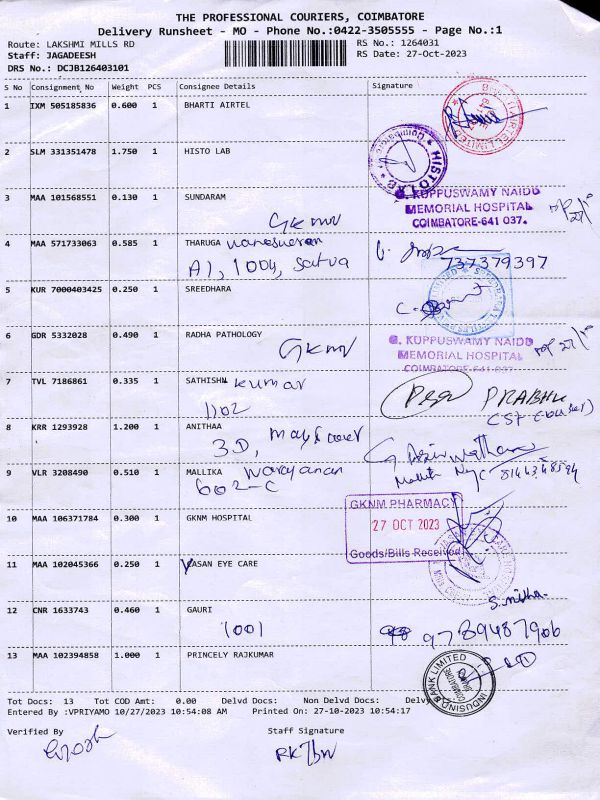 THE PROFESSIONAL COURIERS, COIMBATORE
Delivery Runsheet - MO - Phone No.:0422-3505555 - Page No.:1
Route: LAKSHMI MILLS RD
RS No.: 1264031
Staff: JAGADEESH
RS Date: 27-Oct-2023
DRS No.: DCJB126403101
S No Consignment No Weight PCS Consignee Details Signature
1 IXM 505185836 0.600 1 BHARTI AIRTEL
2 SLM 331351478 1.750 1 HISTO LAB
HISTOLAB
Coimbatore
3 MAA 101568551 0.130 1 SUNDARAM
G. KUPPUSWAMY NAIDU
MEMORIAL HOSPITAL
COIMBATORE-641 037.
GKNM
4 MAA 571733063 0.585 1 THARUGA
A1, 1004, Satva
737379397
5 KUR 7000403425 0.250 1 SREEDHARA
6 GDR 5332028 0.490 1 RADHA PATHOLOGY
GKNM
G. KUPPUSWAMY NAIDU
MEMORIAL HOSPITAL
COIMBATORE-641 037
7 TVL 7186861 0.335 1 SATHISH kumar
1102
PRABHU
8 KRR 1293928 1.200 1 ANITHAA
3D,
9 VLR 3208490 0.510 1 MALLIKA Narayanan
602-C
10 MAA 106371784 0.300 1 GKNM HOSPITAL
GKNM PHARMACY
27 OCT 2023
Goods/Bills Received
11 MAA 102045366 0.250 1 VASAN EYE CARE
12 CNR 1633743 0.460 1 GAURI
1001
S. nisha.
9789487906
13 MAA 102394858 1.000 1 PRINCELY RAJKUMAR
INDUSIND BANK LIMITED
Tot Docs: 13 Tot COD Amt: 0.00 Delvd Docs: Non Delvd Docs: Delvy
Entered By :VPRIYAMO 10/27/2023 10:54:08 AM Printed On: 27-10-2023 10:54:17
Verified By
Staff Signature